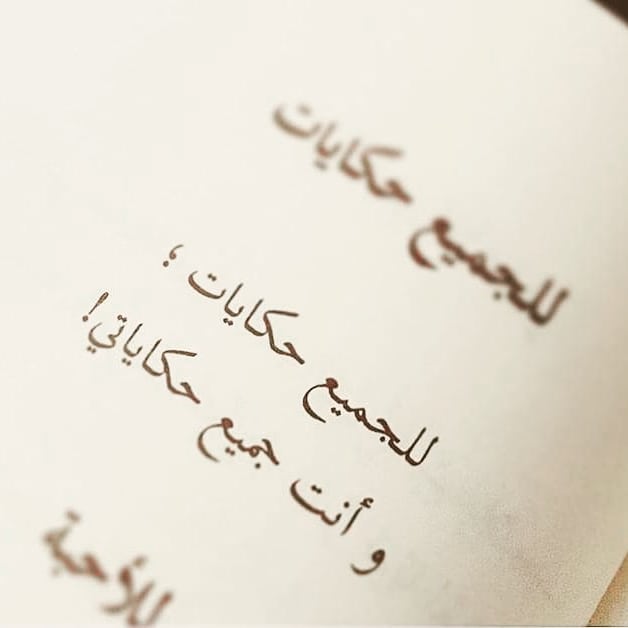 للجميع حكايات
للجميع حكايات ؛
و أنت جميع حكاياتي!
للأحبة